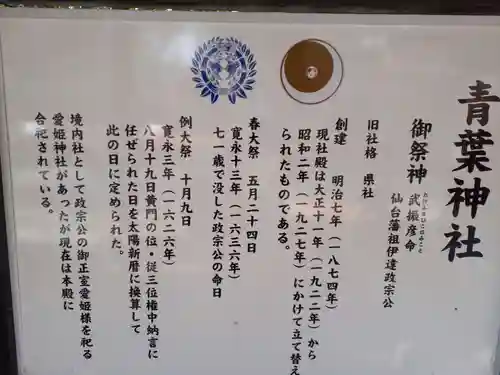 青葉神社
御祭神 武振彦命
たけふるひこのみこと
仙台藩祖伊達政宗公
旧社格 県社
創建 明治七年(一八七四年)
現社殿は大正十一年(一九二二年)から
昭和二年(一九二七年)にかけて立て替え
られたものである。
春大祭 五月二十四日
寛永十三年(一六三六年)
七一歳で没した政宗公の命日
例大祭 十月九日
寛永三年(一六二六年)
八月十九日黄門の位・従三位権中納言に
任ぜられた日を太陽新暦に換算して
此の日に定められた。
境内社として政宗公の御正室愛姫様を祀る
愛姫神社があったが現在は本殿に
合祀されている。